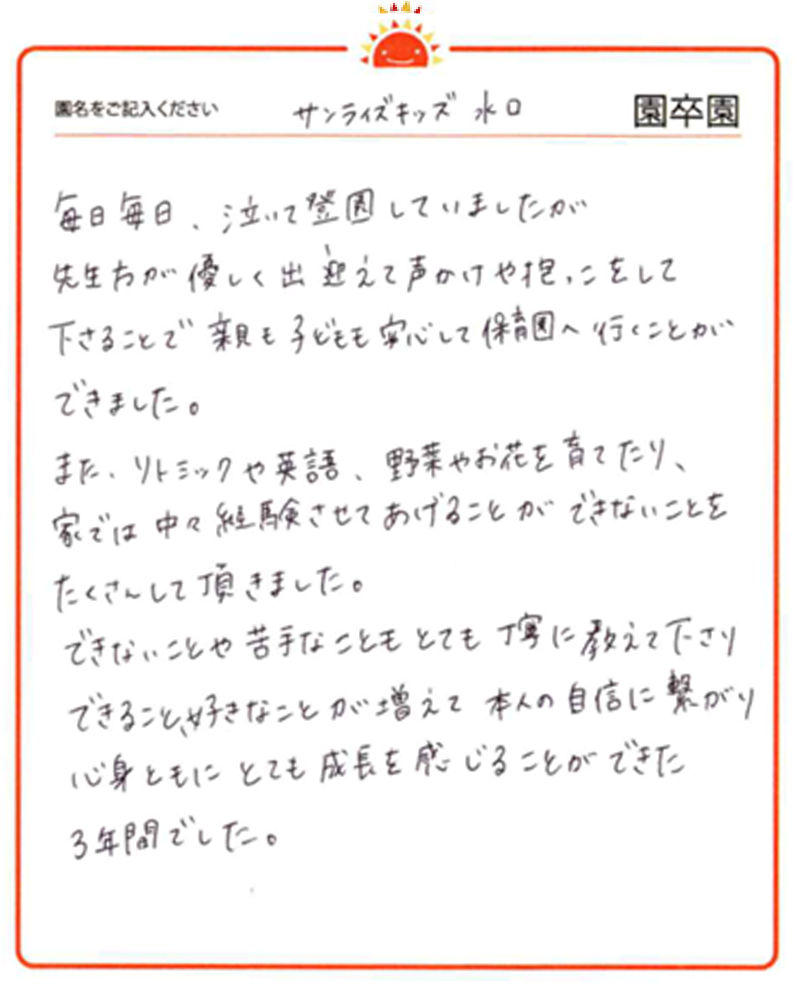 園名をご記入ください サンライズキッズ 水口 園卒園
毎日毎日、泣いて登園していましたが
先生方が優しく出迎えて声かけや抱っこをして
下さることで親も子どもも安心して保育園へ行くことが
できました。
また、リトミックや英語、野菜やお花を育てたり、
家では中々経験させてあげることができないことを
たくさんして頂きました。
できないことや苦手なこともとても丁寧に教えて下さり
できること、好きなことが増えて本人の自信に繋がり
心身ともにとても成長を感じることができた
3年間でした。